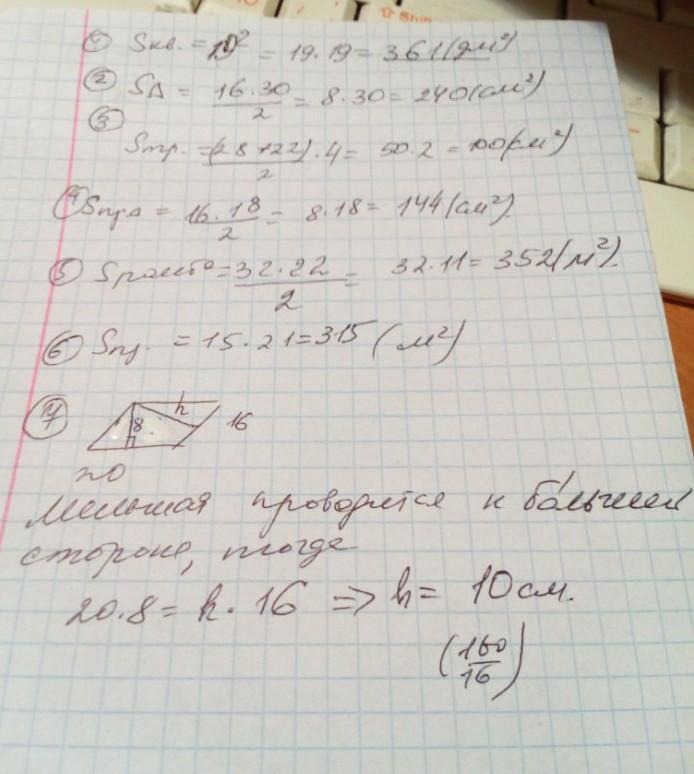 ① Sкв. = 19² = 19·19 = 361 (дм²)
② S△ = 16·30/2 = 8·30 = 240 (см²)
③
Sтр. = (28+22)/2 · 4 = 50·2 = 100 (см²)
④ Sпр△ = 16·18/2 = 8·18 = 144 (см²).
⑤ Sромб = 32·22/2 = 32·11 = 352 (м²).
⑥ Sпр. = 15·21 = 315 (м²)
⑦ 8 h 16
20
Меньшая проводится к большей
стороне, тогда
20·8 = h·16 => h = 10 см.
(160/16)